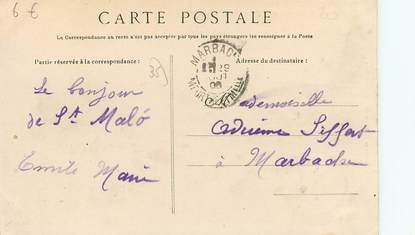 6 €
CARTE POSTALE
La Correspondance au recto n'est pas acceptée par tous les pays étrangers (se renseigner à la Poste)
Partie réservée à la correspondance:
Adresse du destinataire:
35)
MARBACHE
Le bonjour
de St Malô
Emile Marie
Mademoiselle
Adrienne Seffert
à
Marbache